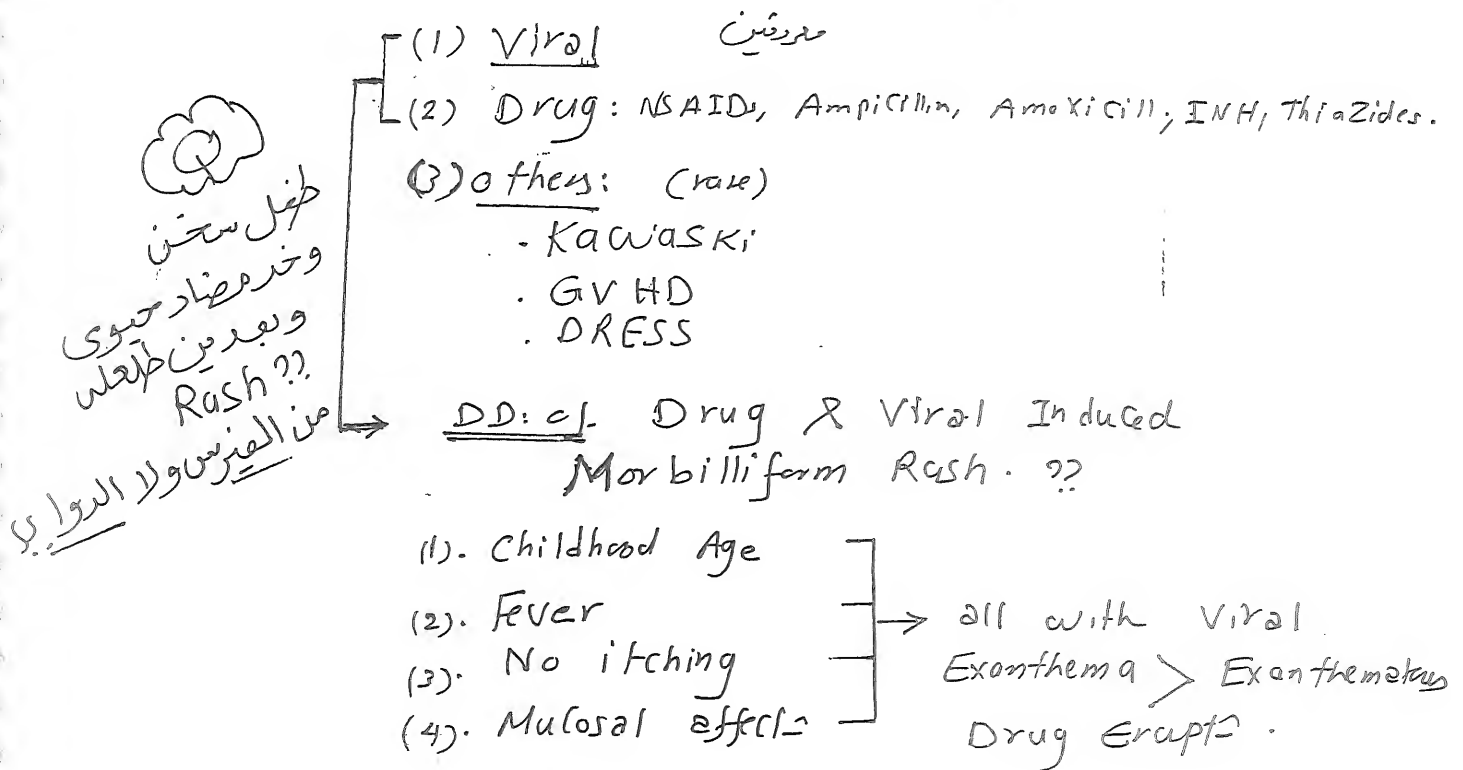 (1) Viral معروفين
(2) Drug: NSAIDs, Ampicillin, Amoxicill, INH, Thiazides.
(3) others: (rare)
. Kawaski
. GVHD
. DRESS
طفل سخن
وخد مضاد حيوى
وبعدين طلعله
Rash ??
من الفيرس ولا الدوا
DD: cl. Drug & Viral Induced
Morbilliform Rash. ??
(1). Childhood Age
(2). Fever
(3). No itching
(4). Mucosal affect=
all with Viral
Exanthema > Exanthematous
Drug Erupt=.